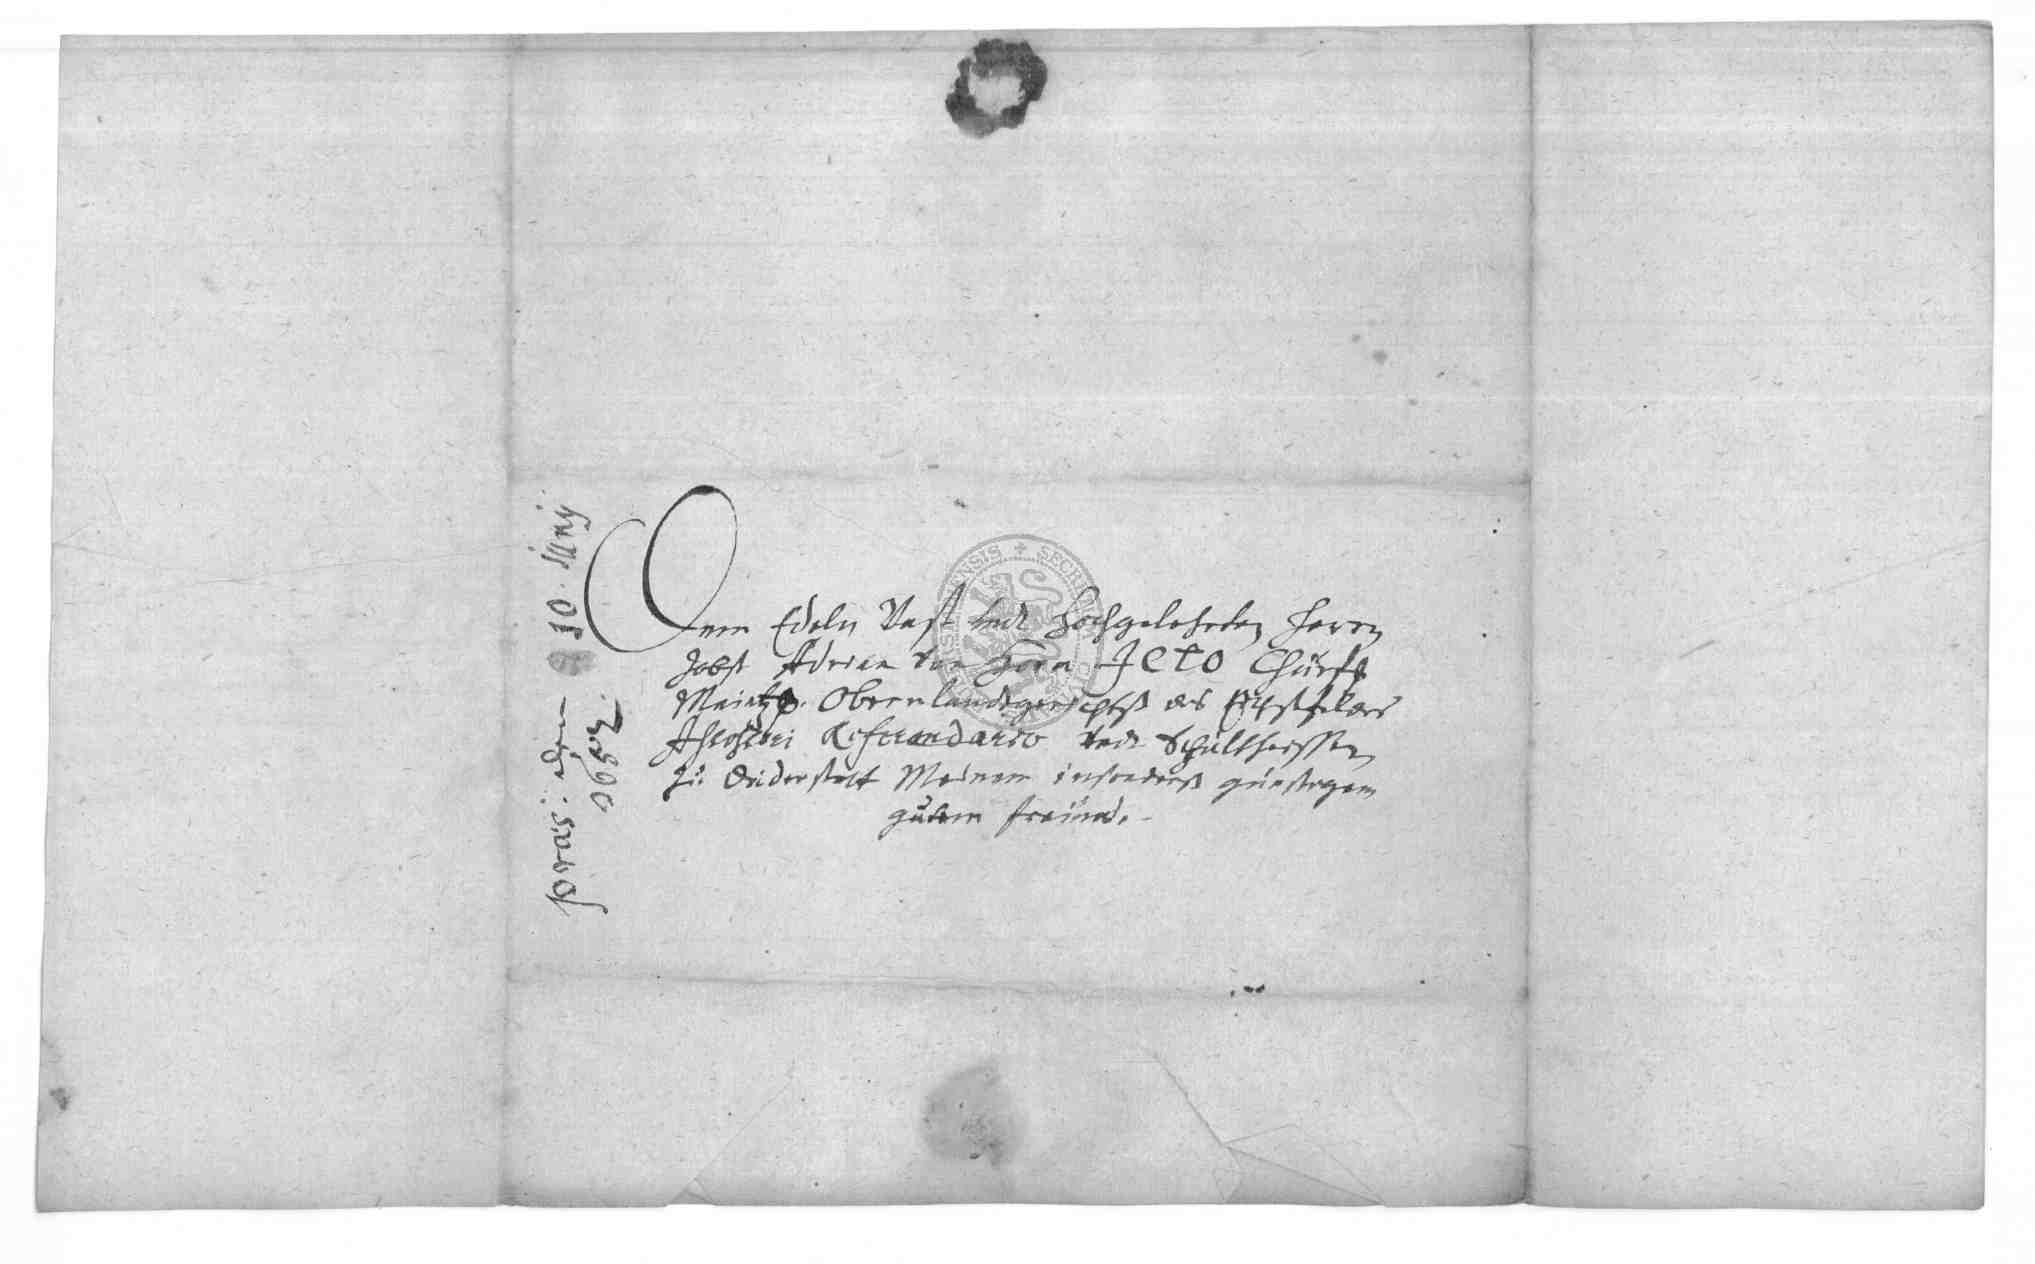 praes: den 10. Junij
1652.
Dem Edeln Vest vndt Hochgelehrten Herrn
Jobst Adrian von Horn JCto Churfl
Maintz. Obernlandtgerichtß des Eychsfeldes
Assessori Referendario vndt Schultheissen
zu Duderstatt Meinem insonderß günstigem
gutem freund.
ENSIS + SECRE